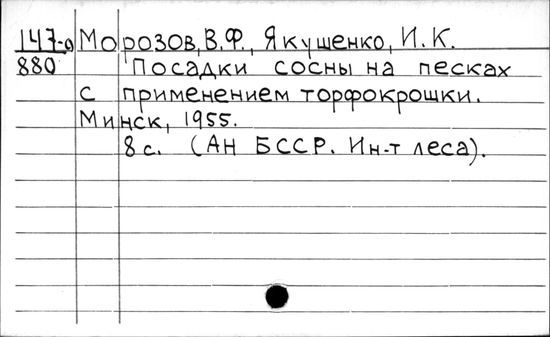 147-а Морозов, В.Ф., Якушенко, И.К.
880 Посадки сосны на песках
с применением торфокрошки.
Минск, 1955.
8 с. (АН БССР. Ин-т леса).